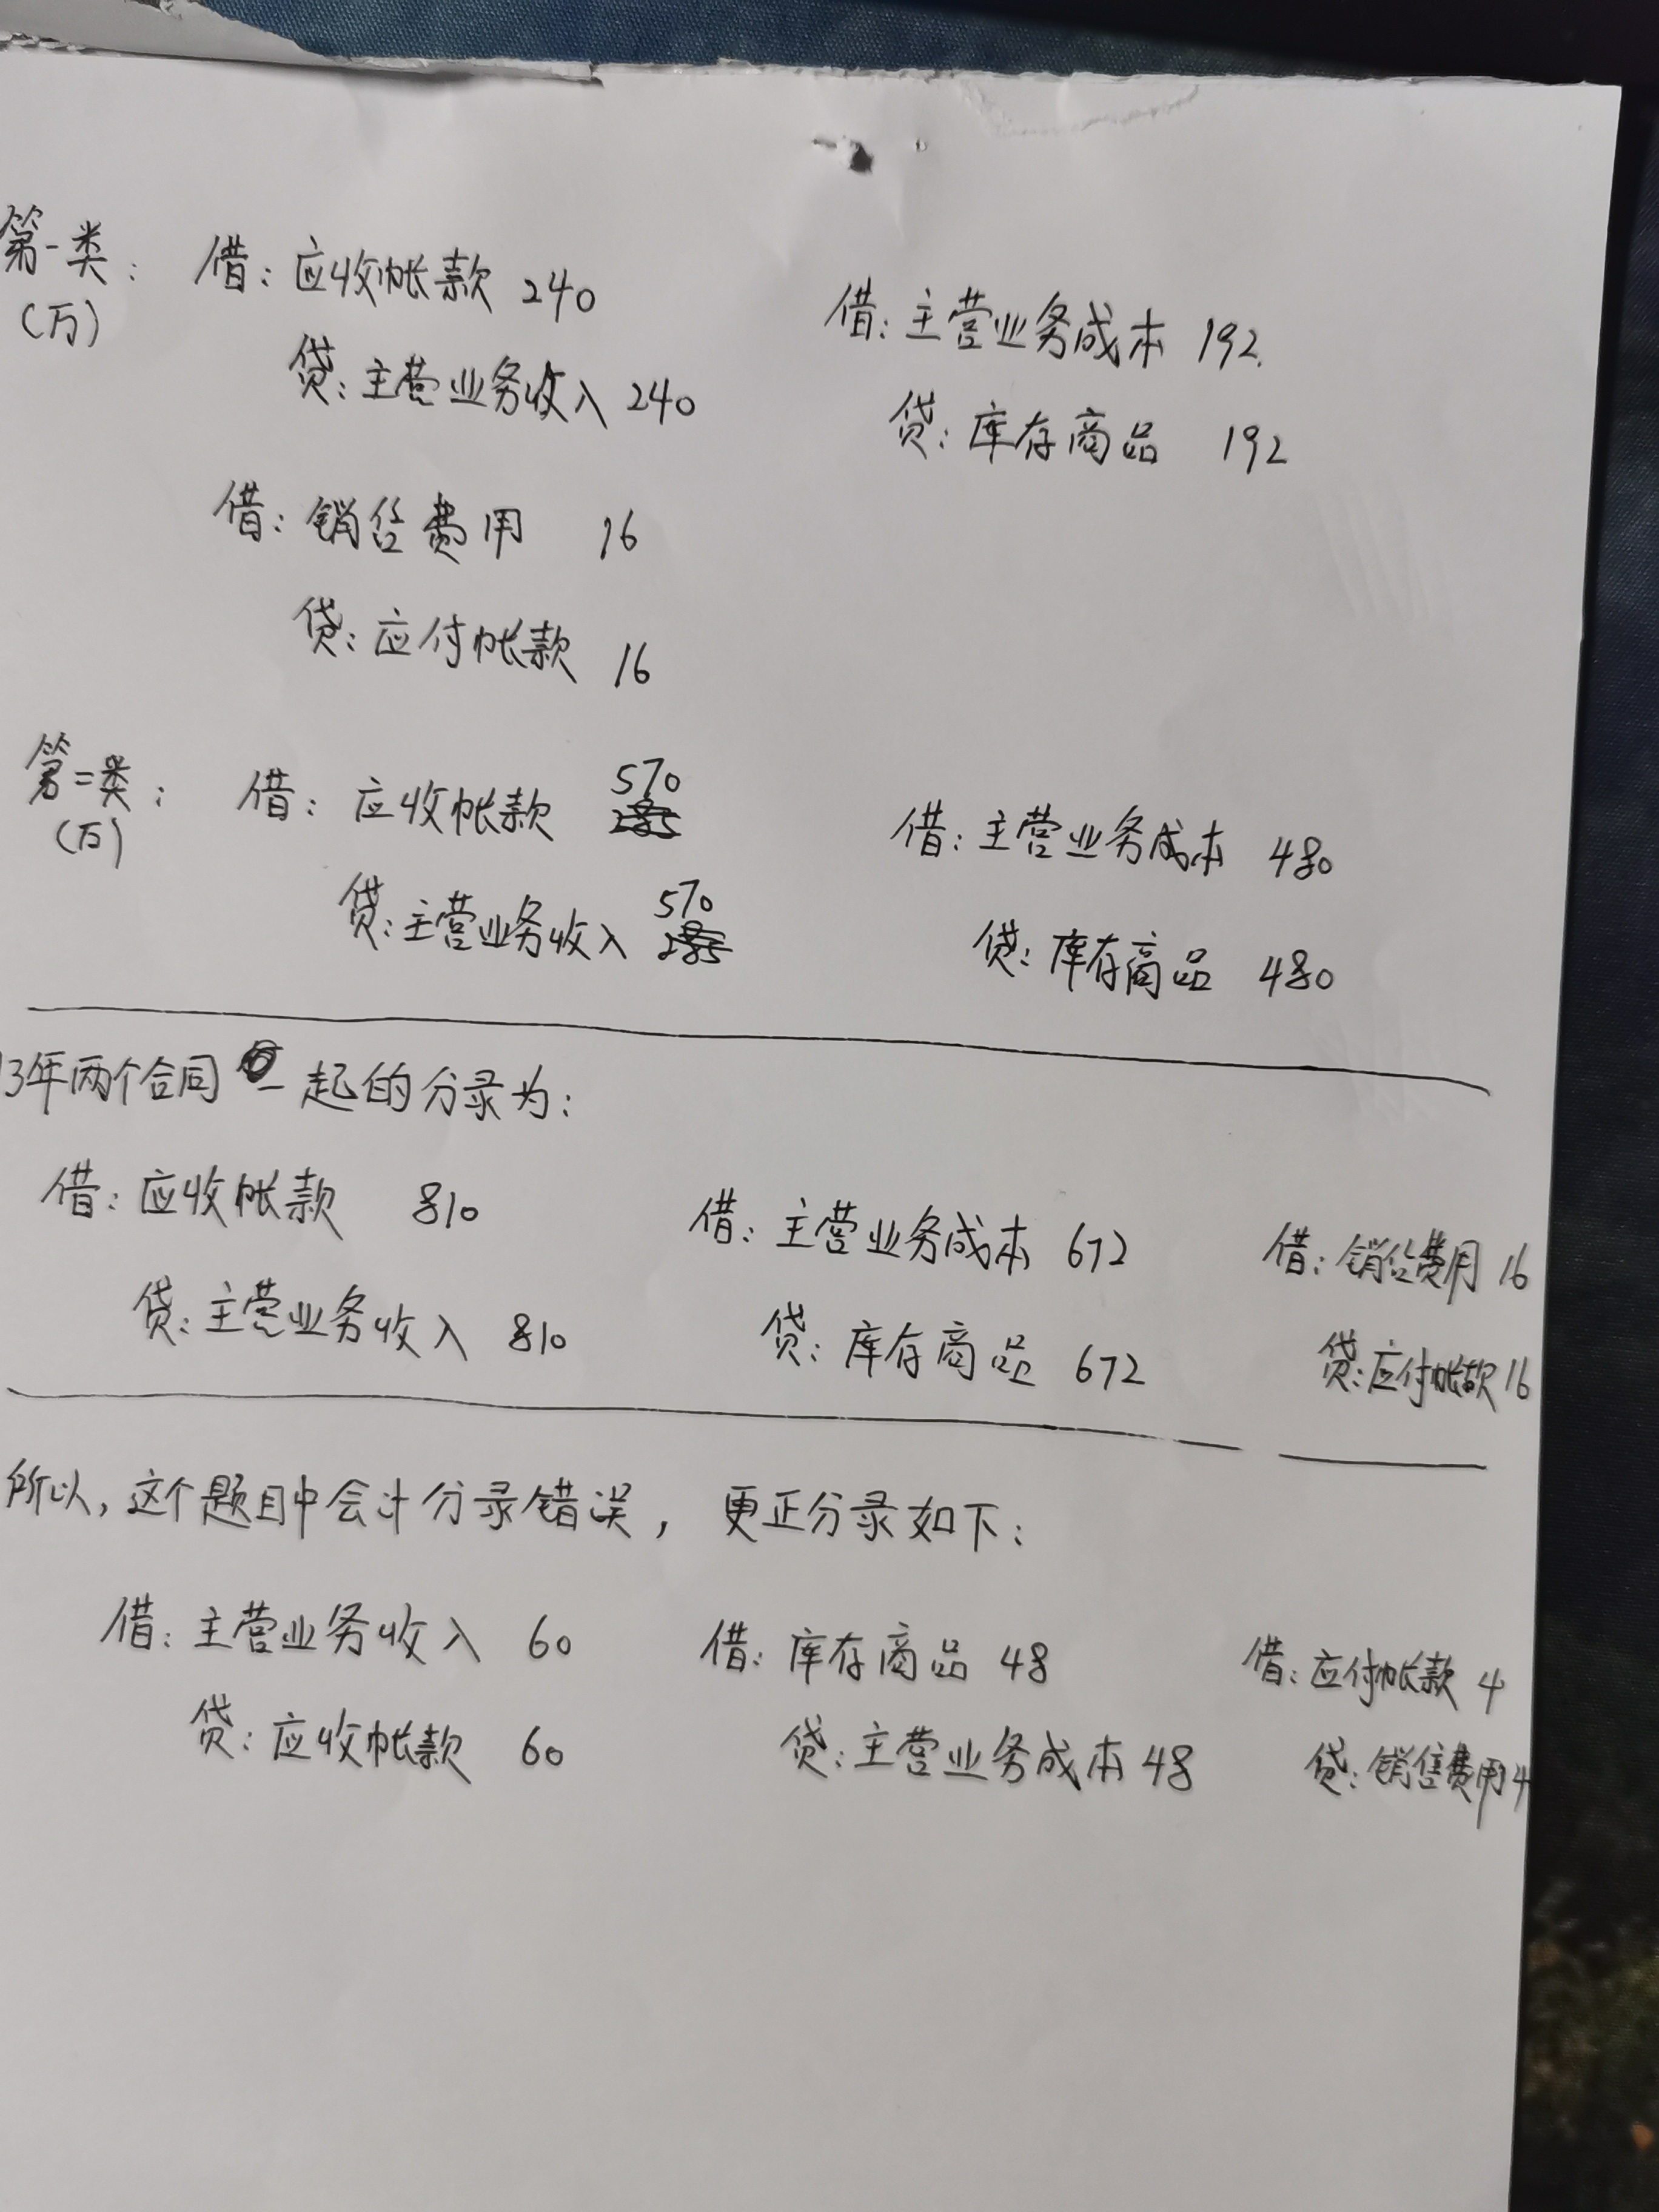 第一类： 借：应收帐款 240 借：主营业务成本 192
(万) 贷：主营业务收入 240 贷：库存商品 192
借：销售费用 16
贷：应付帐款 16
第二类： 借：应收帐款 570 借：主营业务成本 480
(万) 贷：主营业务收入 570 贷：库存商品 480
13年两个合同一起的分录为：
借：应收帐款 810 借：主营业务成本 672 借：销售费用 16
贷：主营业务收入 810 贷：库存商品 672 贷：应付帐款 16
所以，这个题目中会计分录错误， 更正分录如下：
借：主营业务收入 60 借：库存商品 48 借：应付帐款 4
贷：应收帐款 60 贷：主营业务成本 48 贷：销售费用 4